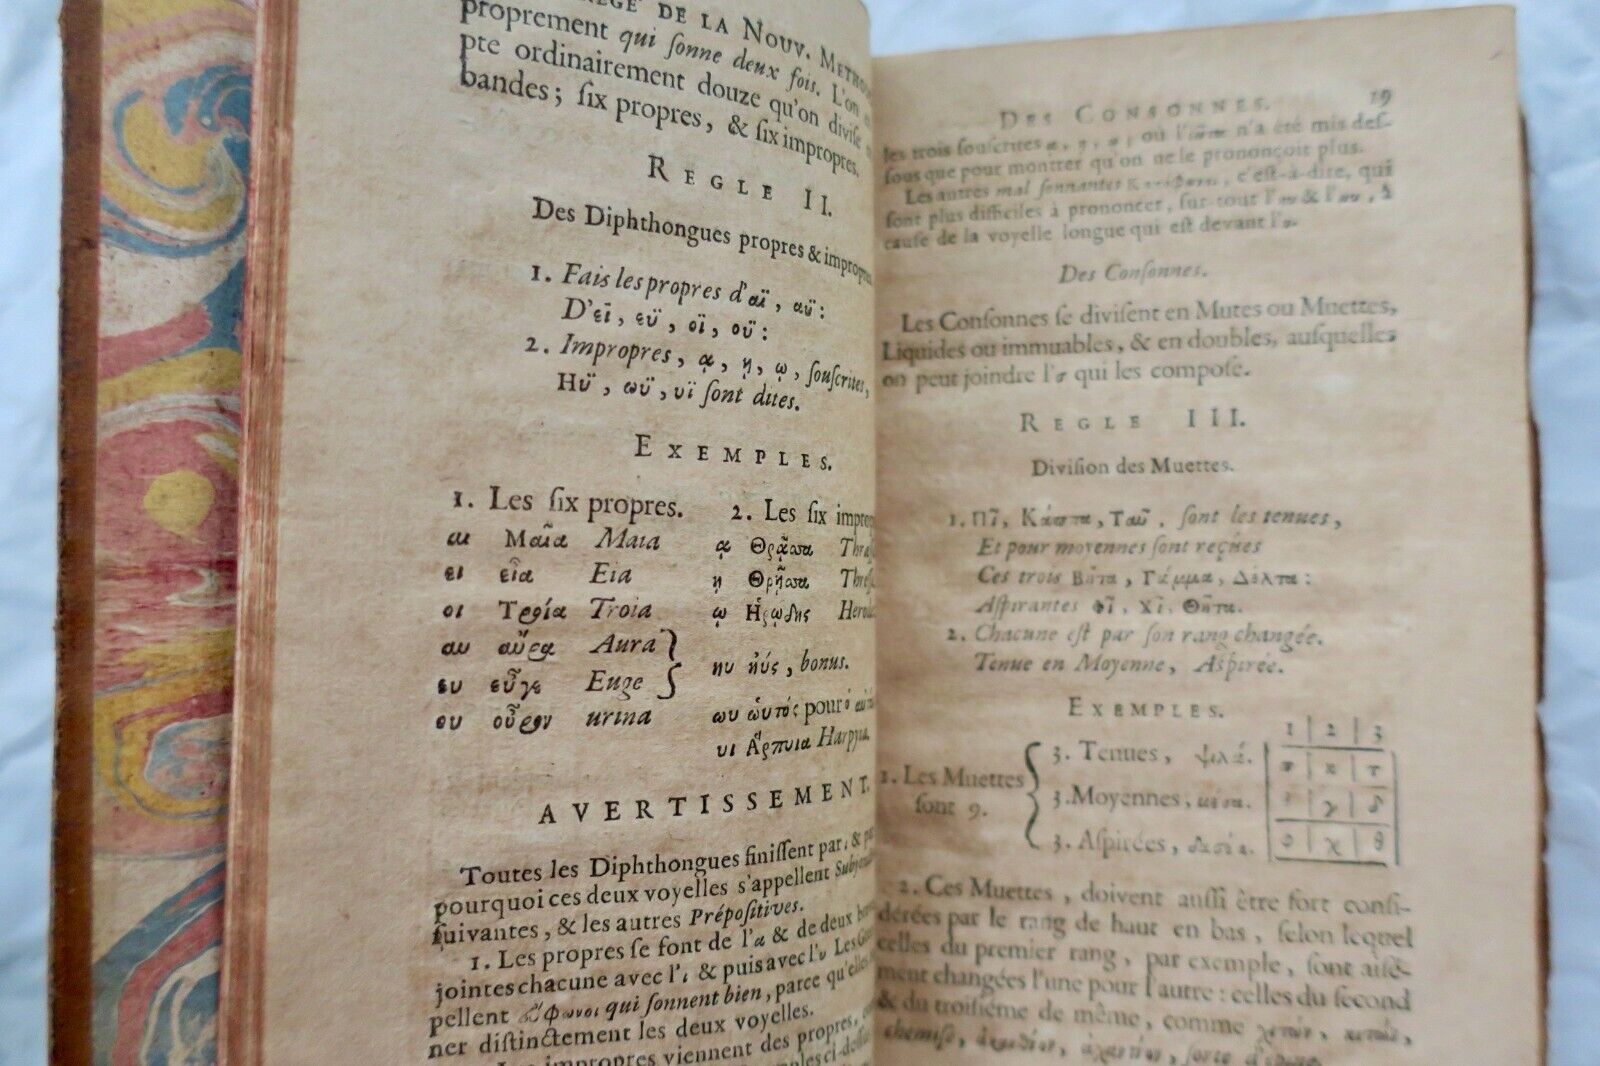 DE LA NOUV. METHO
proprement qui ſonne deux fois. L'on
pte ordinairement douze qu'on diviſe
bandes; ſix propres, & ſix impropres.
REGLE II.
Des Diphthongues propres & impropres
1. Fais les propres d'αϊ, αϋ:
D'εϊ, εϋ, οϊ, οϋ:
2. Impropres, ᾳ, ῃ, ῳ, ſouſcrites,
Ηϋ, ωϋ, υϊ ſont dites.
EXEMPLES.
1. Les ſix propres.
αι Μαῖα Maia
ει εἶα Eia
οι Τροία Troia
αυ αὔρα Aura
ευ εὖγε Euge
ου οὖρον urina
2. Les ſix improp
ᾳ Θρᾷσσα
ῃ Θρῇσσα
ῳ Ἡρῴδης Herod
ηυ ηὖς, bonus.
ωυ ωὑτός pour ὁ αὐτ
υι Ἅρπυια Harpyia.
AVERTISSEMENT.
Toutes les Diphthongues finiſſent par ι & par
pourquoi ces deux voyelles s'appellent
ſuivantes, & les autres Prépoſitives.
1. Les propres ſe font de l'α & de deux
jointes chacune avec l'ι & puis avec l'υ Les
pellent εὔφωνοι qui ſonnent bien, parce qu'elles
ner diſtinctement les deux voyelles.
impropres viennent des propres,
ci-deſſus
DES CONSONNES. 19
les trois ſouſcrites ᾳ, ῃ, ῳ, où l'ἰῶτα n'a été mis deſ-
ſous que pour montrer qu'on ne le prononçoit plus.
Les autres mal ſonnantes κακόφωνοι, c'eſt-à-dire, qui
ſont plus difficiles à prononcer, ſur-tout l'ηυ & l'ωυ, à
cauſe de la voyelle longue qui eſt devant l'υ.
Des Conſonnes.
Les Conſonnes ſe diviſent en Mutes ou Muettes,
Liquides ou immuables, & en doubles, auſquelles
on peut joindre l'σ qui les compoſe.
REGLE III.
Diviſion des Muettes.
1. Πῖ, Κάππα, Ταῦ, ſont les tenues,
Et pour moyennes ſont reçûes
Ces trois Βῆτα, Γάμμα, Δέλτα:
Aſpirantes Φῖ, Χῖ, Θῆτα.
2. Chacune eſt par ſon rang changée.
Tenue en Moyenne, Aſpirée.
EXEMPLES.
1. Les Muettes
ſont 9.
3. Tenues, ψιλά.
3. Moyennes, μέσα.
3. Aſpirées, δασέα.
1 | 2 | 3
π | κ | τ
β | γ | δ
φ | χ | θ
2. Ces Muettes, doivent auſſi être fort conſi-
dérées par le rang de haut en bas, ſelon lequel
celles du premier rang, par exemple, ſont aiſé-
ment changées l'une pour l'autre: celles du ſecond
& du troiſième de même, comme
chemiſe, ſorte